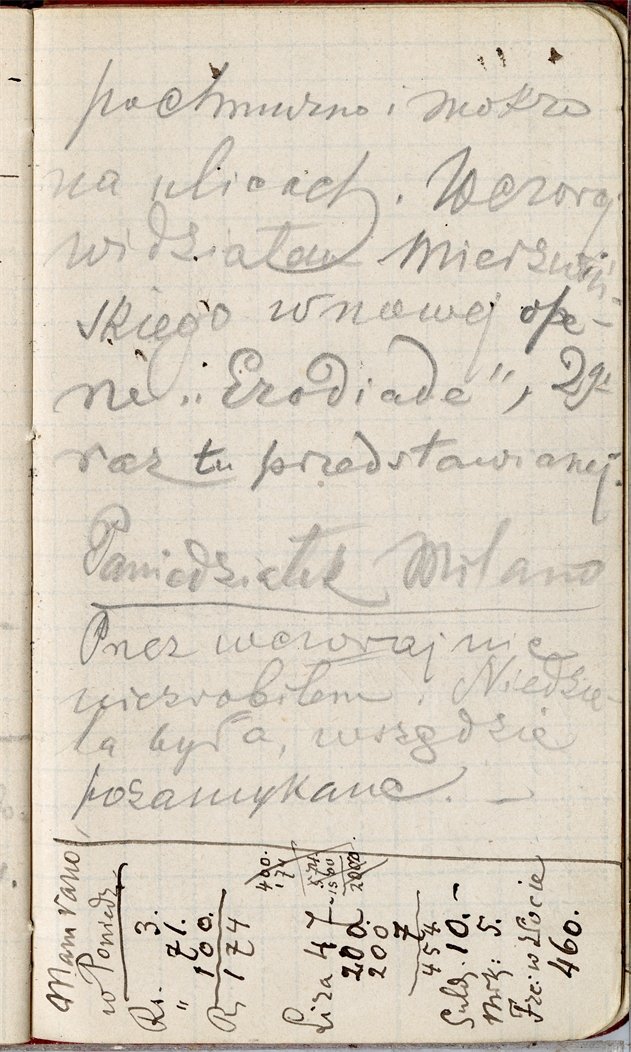 pochmurno i mokro
na ulicach. Wczoraj
widziałem Mierzwiń-
skiego w nowej ope-
rze „Erodiade”, 2gi
raz tu przedstawianej.
Poniedziałek Milano
Przez wczoraj nic
niezrobiłem. Niedzie-
la była, wszędzie
pozamykane. —
Mam rano
w Poniedz.
Rs. 3.
" 71.
100.
R. 174
400.
174
574
1500
2000.
Lira 47
200.
200
7
454
Guld. 10. —
Mrk: 5.
Frc: w złocie
460.